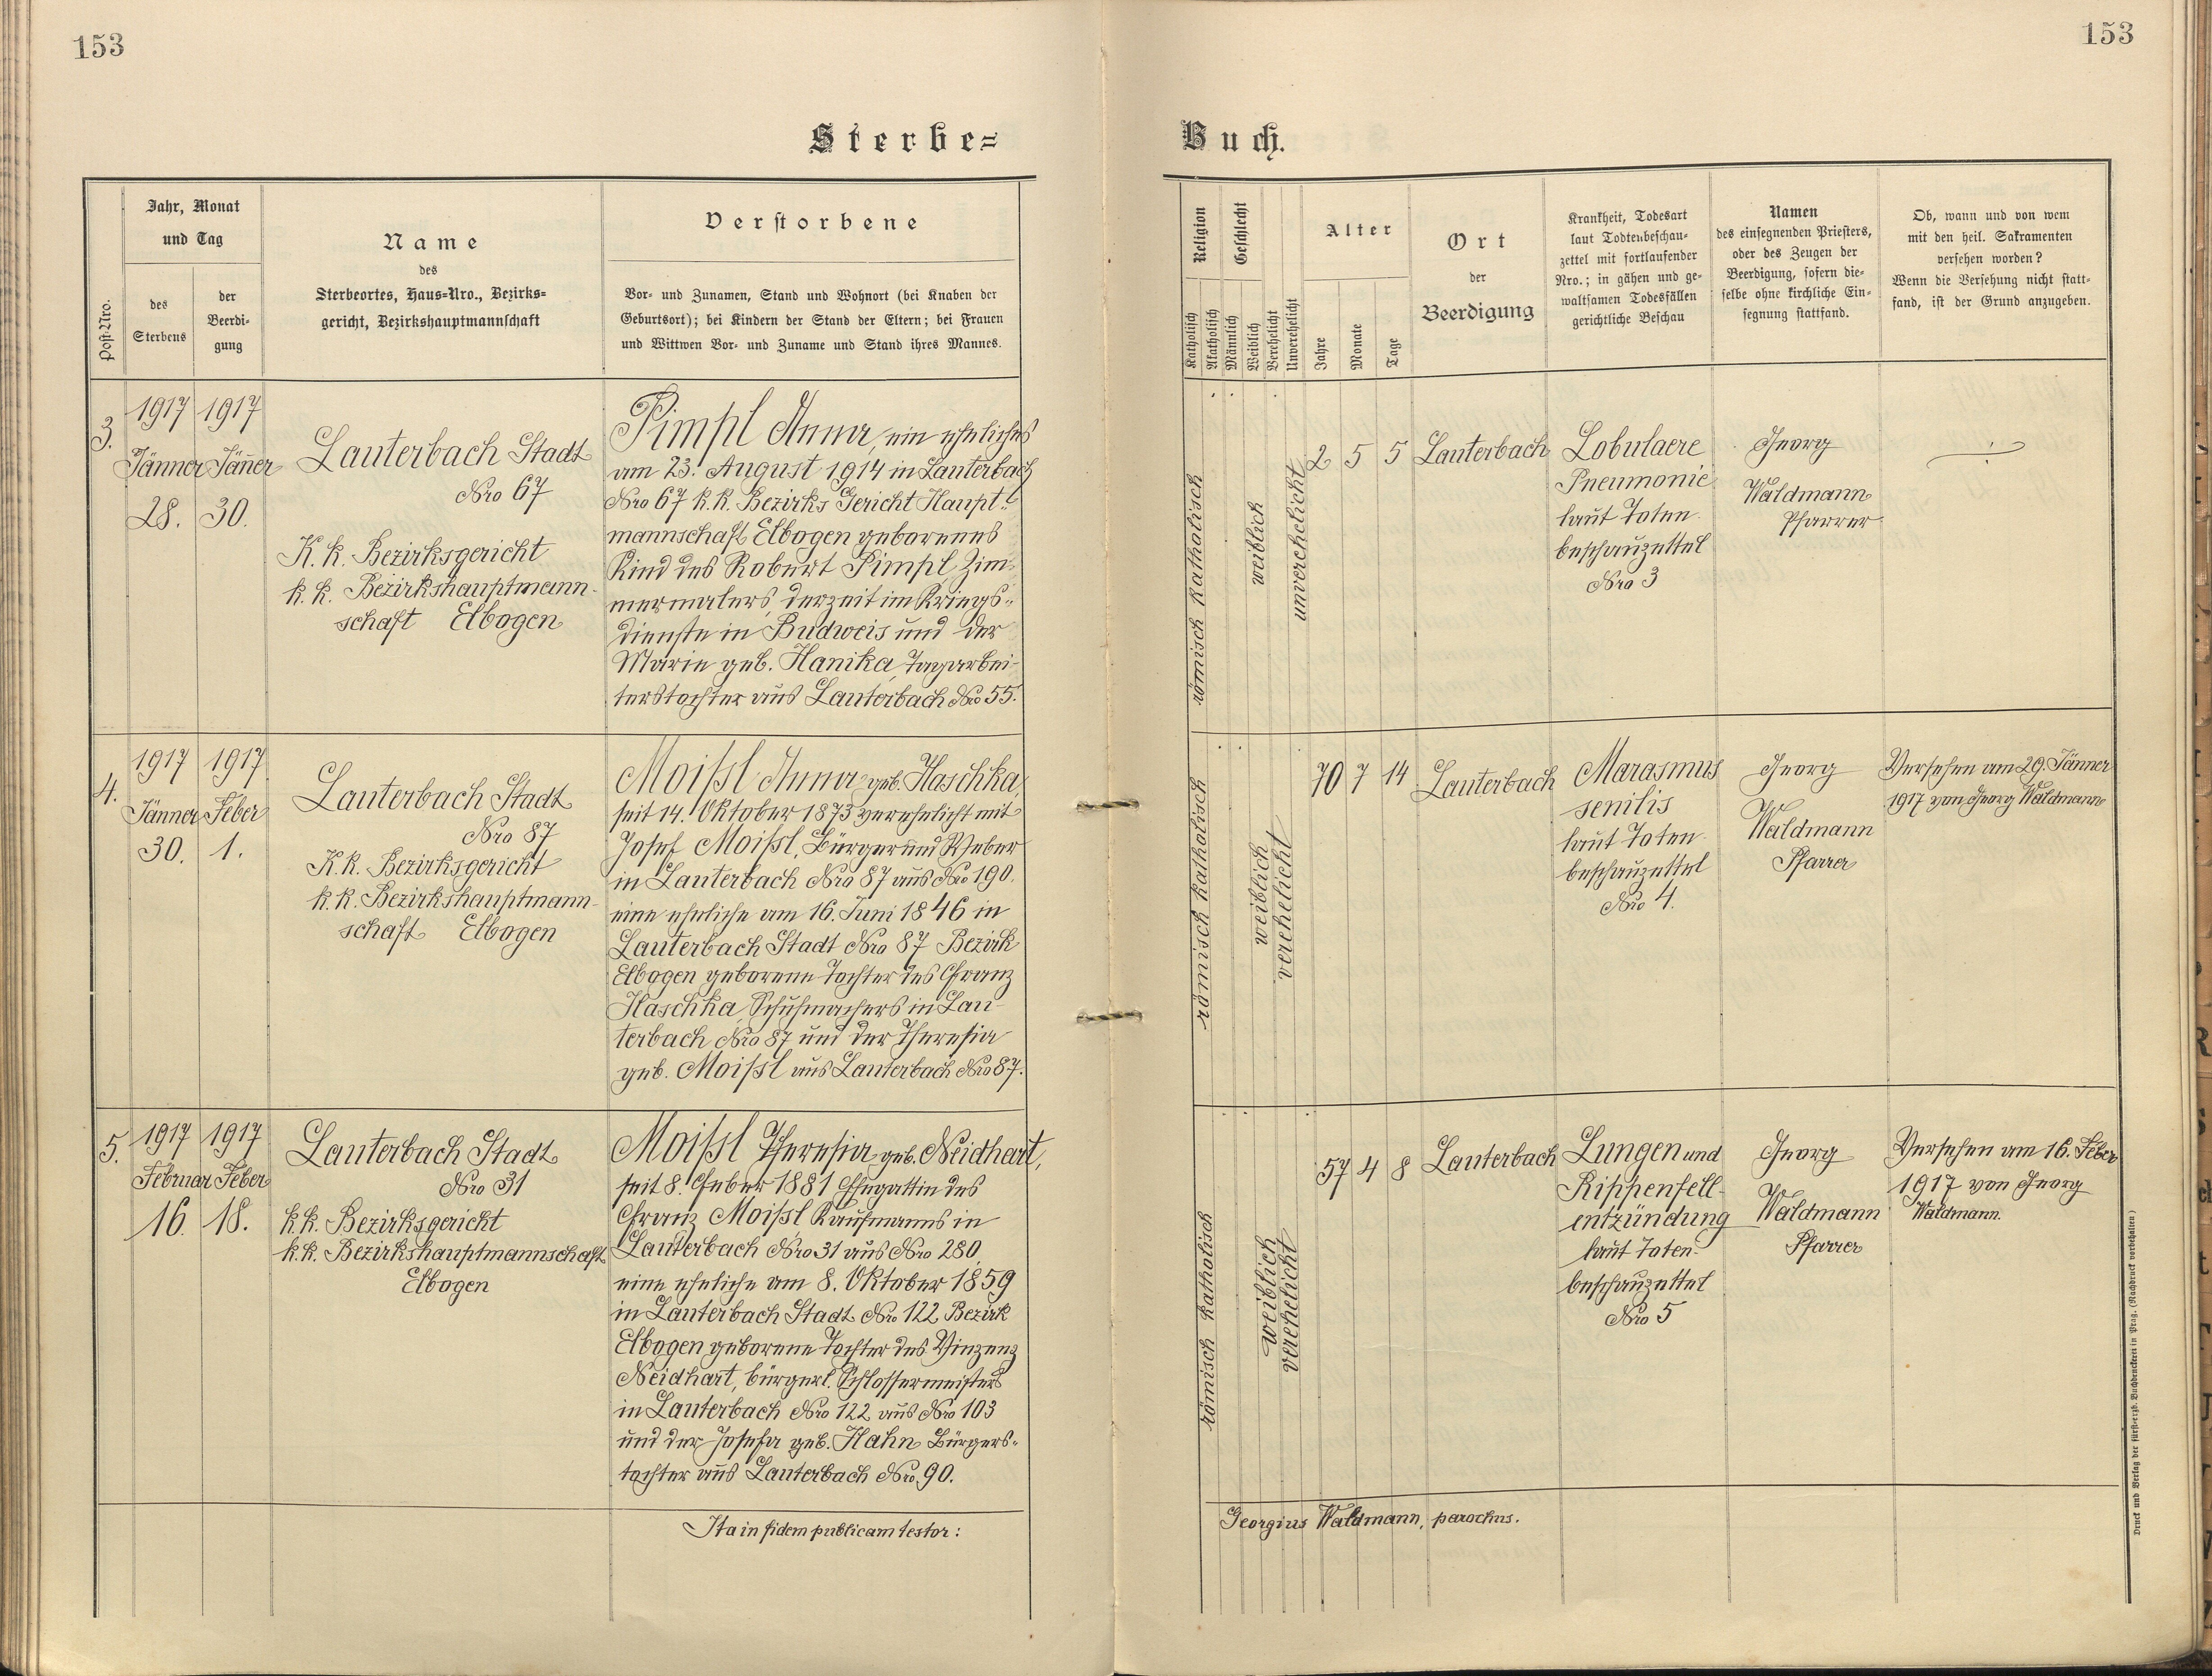 153
153
Sterbe=
Buch.
Post-Nro.
Jahr, Monat
und Tag
des
Sterbens
der
Beerdi-
gung
Name
des
Sterbeortes, Haus=Nro., Bezirks=
gericht, Bezirkshauptmannschaft
Verstorbene
Vor- und Zunamen, Stand und Wohnort (bei Knaben der
Geburtsort); bei Kindern der Stand der Eltern; bei Frauen
und Wittwen Vor- und Zuname und Stand ihres Mannes.
Religion
Katholisch
Akatholisch
Geschlecht
Männlich
Weiblich
Verehelicht
Unverehelicht
Alter
Jahre
Monate
Tage
Ort
der
Beerdigung
Krankheit, Todesart
laut Todtenbeschau-
zettel mit fortlaufender
Nro.; in gähen und ge-
waltsamen Todesfällen
gerichtliche Beschau
Namen
des einsegnenden Priesters,
oder des Zeugen der
Beerdigung, sofern die-
selbe ohne kirchliche Ein-
segnung stattfand.
Ob, wann und von wem
mit den heil. Sakramenten
versehen worden?
Wenn die Versehung nicht statt-
fand, ist der Grund anzugeben.
3.
1917
Jänner
28.
1917
Jäner
30.
Lauterbach Stadt
Nro 67
K. k. Bezirksgericht
k. k. Bezirkshauptmann-
schaft Elbogen
Pimpl Anna, ein eheliches
am 23. August 1914 in Lauterbach
Nro 67 k. k. Bezirks Gericht Haupt-
mannschaft Elbogen geborenes
Kind des Robert Pimpl, Zim-
mermalers, derzeit im Kriegs-
dienste in Budweis und der
Marie geb. Hanika, Tagarbei-
terstochter aus Lauterbach Nro 55.
römisch katholisch
weiblich
unverehelicht
2
5
5
Lauterbach
Lobulaere
Pneumonie
laut Toten-
beschauzettel
Nro 3
Georg
Waldmann
Pfarrer
4.
1917
Jänner
30.
1917
Feber
1.
Lauterbach Stadt
Nro 87
K. k. Bezirksgericht
k. k. Bezirkshauptmann-
schaft Elbogen
Moißl Anna geb. Haschka,
seit 14. Oktober 1873 verehelicht mit
Josef Moißl, Bürger und Weber
in Lauterbach Nro 87 aus Nro 190.
eine eheliche am 16. Juni 1846 in
Lauterbach Stadt Nro 87 Bezirk
Elbogen geborene Tochter des Franz
Haschka, Schuhmachers in Lau-
terbach Nro 87 und der Theresia
geb. Moißl aus Lauterbach Nro 87.
römisch katholisch
weiblich
verehelicht
70
7
14
Lauterbach
Marasmus
senilis
laut Toten-
beschauzettel
Nro 4.
Georg
Waldmann
Pfarrer
Versehen am 29. Jänner
1917 von Georg Waldmann
5.
1917
Februar
16.
1917
Feber
18.
Lauterbach Stadt
Nro 31
k. k. Bezirksgericht
k. k. Bezirkshauptmannschaft
Elbogen
Moißl Theresia geb. Neidhart,
seit 8. Feber 1881 Ehegattin des
Franz Moißl Kaufmanns in
Lauterbach Nro 31 aus Nro 280,
eine eheliche am 8. Oktober 1859
in Lauterbach Stadt Nro 122 Bezirk
Elbogen geborene Tochter des Vinzenz
Neidhart, bürgerl. Schlossermeisters
in Lauterbach Nro 122 aus Nro 103
und der Josefa geb. Hahn Bürgers-
tochter aus Lauterbach Nro. 90.
römisch katholisch
weiblich
verehelicht
57
4
8
Lauterbach
Lungen und
Rippenfell-
entzündung
laut Toten-
beschauzettel
Nro 5
Georg
Waldmann
Pfarrer
Versehen am 16. Feber
1917 von Georg
Waldmann.
Ita in fidem publicam testor:
Georgius Waldmann, parochus.
Druck und Verlag der fürst-erzb. Buchdruckerei in Prag. (Nachdruck vorbehalten)